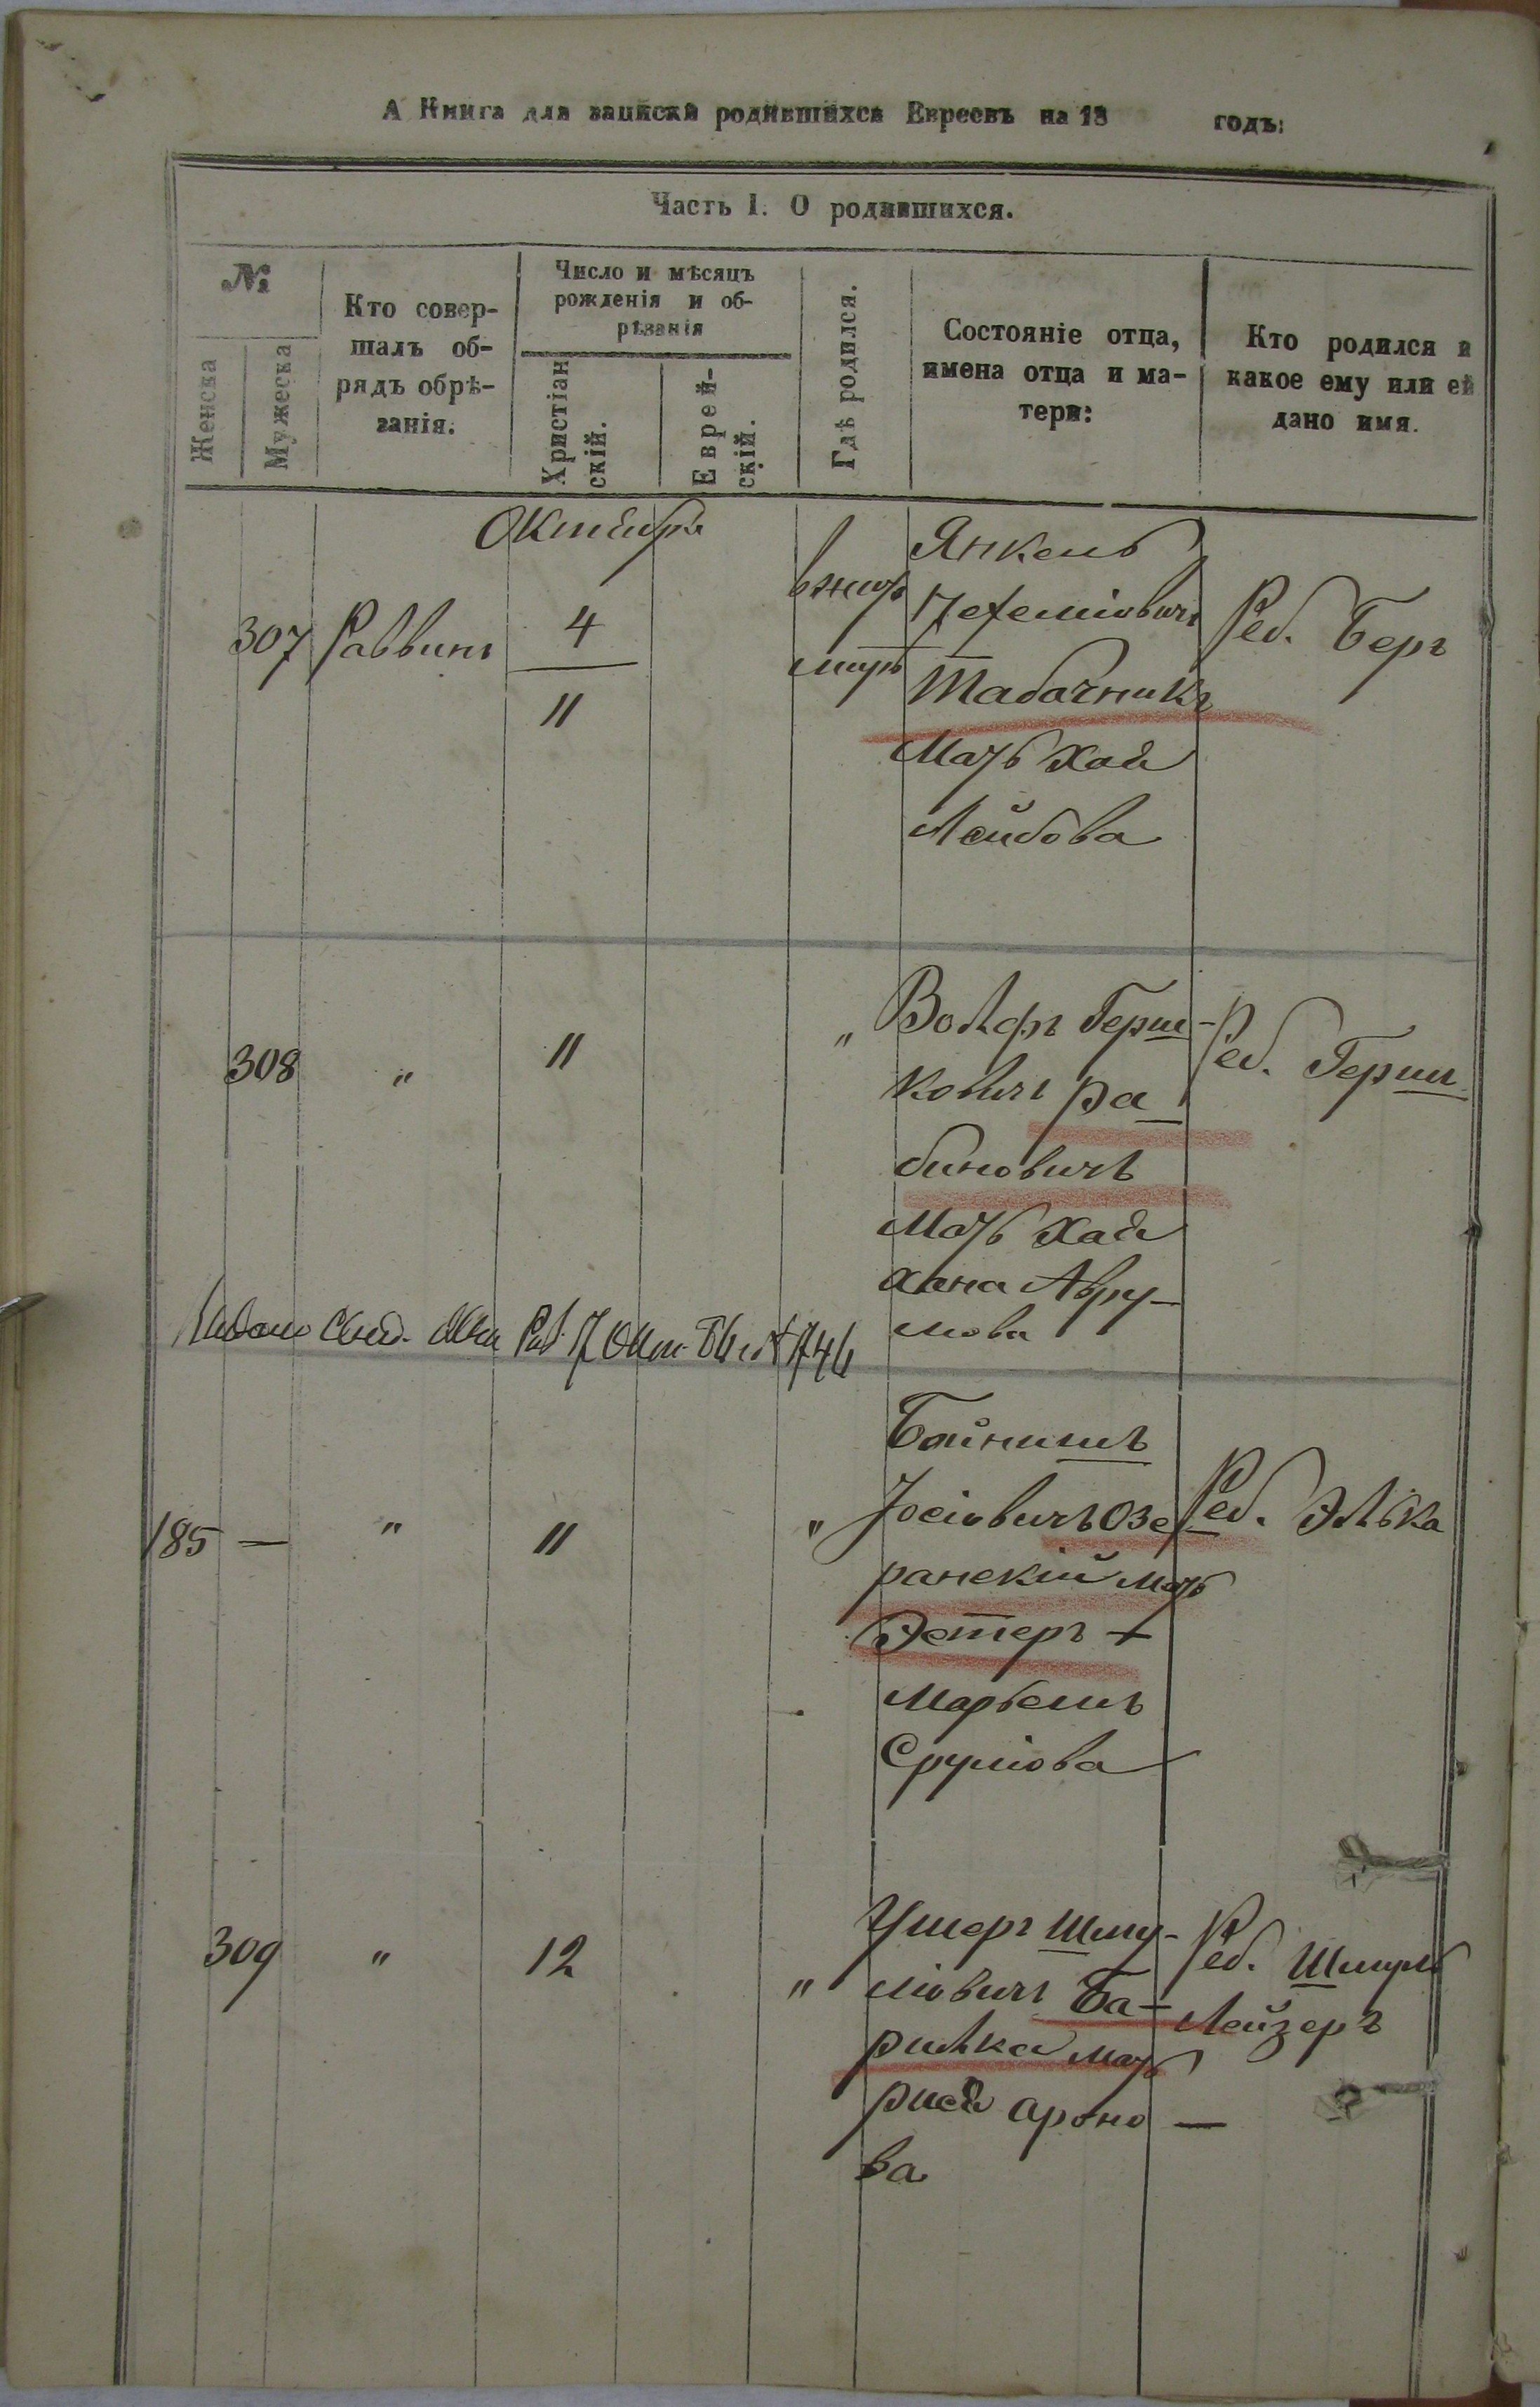 А Книга для записки родившихся Евреевъ на 18 годъ:
Часть I. О родившихся.
№
Женска
Мужеска
Кто совер-
шалъ об-
рядъ обрѣ-
занія.
Число и мѣсяцъ
рожденія и об-
рѣзанія
Христіан
скій.
Еврей-
скій.
Гдѣ родился.
Состояніе отца,
имена отца и ма-
тери:
Кто родился и
какое ему или ей
дано имя.
Октября
307 Раввинъ
4
11
вжит
мирѣ
Янкель
Нехеміовичъ
Табачникъ
Мать Хая
Лейбова
Реб. Беръ
308 " 11 "
Вольфъ Герш-
ковичъ Ра
биновичъ
Мать Хая
Хана Авру-
мова
Реб. Герш
185 — " 11 "
Бейнишъ
Іосіовичъ Озе
ранскій мать
Эстеръ +
Марьемъ
Срулiова
Реб. Элька
309 " 12 "
Ушеръ Шму-
ліовичъ Ба-
рилка мать
Рися Ароно —
ва
Реб. Шмуль
Лейзеръ